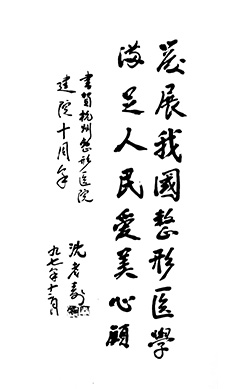 发展我國整形医學
满足人民爱美心願
書贺杭州整形医院
建院十周年
沈孝
九七年十一月